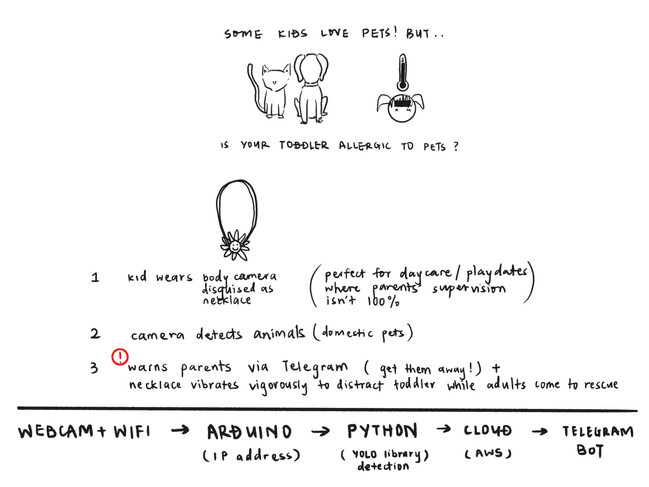 SOME KIDS LOVE PETS! BUT..
IS YOUR TODDLER ALLERGIC TO PETS ?
1 kid wears body camera
disguised as
necklace
(perfect for daycare/playdates
where parents' supervision
isn't 100%)
2 camera detects animals (domestic pets)
!
3 warns parents via Telegram ( get them away!) +
necklace vibrates vigorously to distract toddler while adults come to rescue
WEBCAM + WIFI → ARDUINO → PYTHON → CLOUD → TELEGRAM
BOT
(IP address) (YOLO library) (AWS)
detection